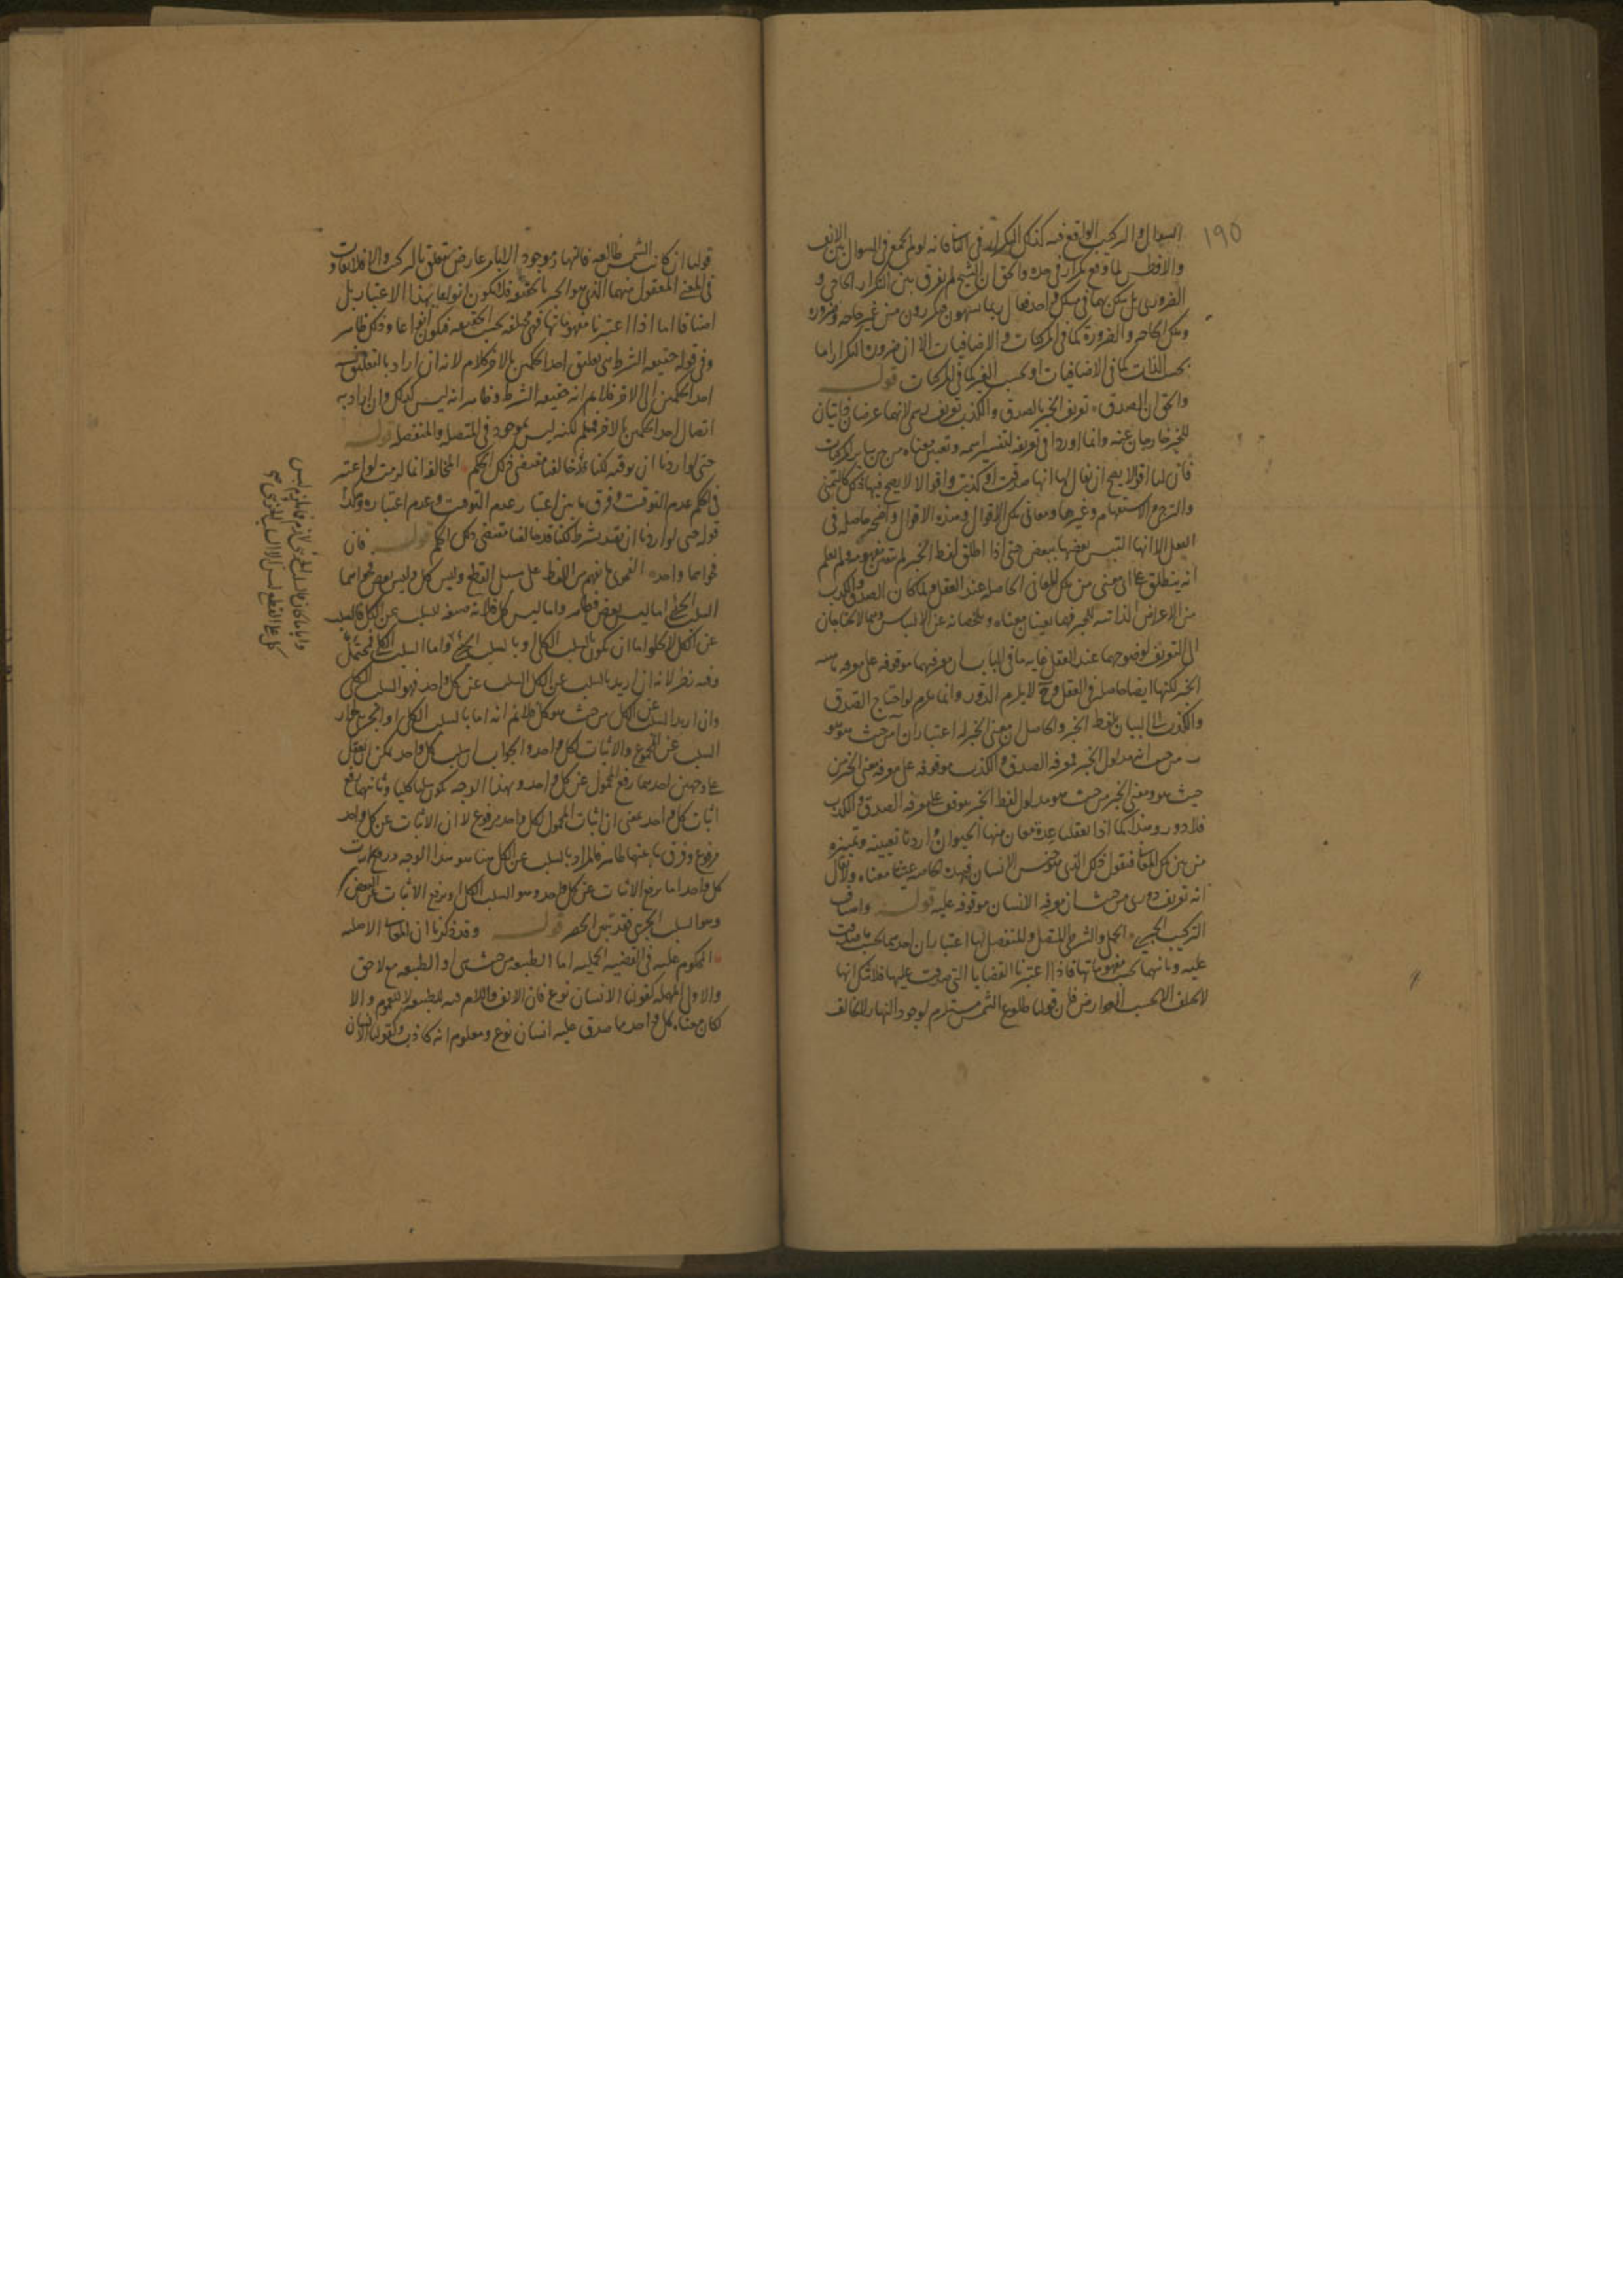 ١٩٥
السؤال والتركيب الواقع فيه كذلك التكرار في الثاني فانه لو لم يجمع في السؤال بين الانف
والافطس لما وقع تكرار في حده والحق ان الشيخ لم يفرق بين التكرار الحاجي و
الضروري بل
ومثل الحاجة والضرورة كما في المركبات والاضافيات الا ان ضرورة التكرار اما
بحسب الذات كما في الاضافيات او بحسب الغير كما في المركبات قوله
والحق ان الصدق تعريف الخبر بالصدق والكذب تعريف رسمي لانهما عرضان ذاتيان
للخبر خارجان عنه وانما اوردا في تعريفه لتفسير اسمه وتعيين معناه من بين ساير المركبات
فان لنا اقوالا يصح ان يقال لها انها صدقت او كذبت واقوالا لا يصح فيها ذلك كالتمني
والترجي والاستفهام وغيرها ومعاني تلك الاقوال وهذه الاقوال واضحة حاصلة في
العقل الا انها التبس بعضها ببعض حتى اذا اطلق لفظ الخبر لم يتعين مفهومه ولم يعلم
انه ينطلق على اي معنى من تلك المعاني الحاصلة عند العقل ولما كان الصدق والكذب
من الاعراض الذاتية للخبر فهما يعينان معناه ويلخصانه عن الالتباس وهما لا يحتاجان
الى التعريف لوضوحهما عند العقل غاية ما في الباب ان معرفتهما موقوفة على معرفة ماهية
الخبر لكنها ايضا حاصلة في العقل وح لا يلزم الدور وانما يلزم لو احتاج الصدق
والكذب الى البيان بلفظ الخبر والحاصل ان معنى الخبر له اعتباران من حيث هو هو
من حيث انه مدلول الخبر فمعرفة الصدق والكذب موقوفة على معرفة معنى الخبر من
حيث هو ومعنى الخبر من حيث هو مدلول لفظ الخبر موقوف على معرفة الصدق والكذب
فلا دور وهذا كما اذا تعقلنا عدة معان منها الحيوان واردنا تعيينه وتميزه
من بين تلك المعاني فنقول ذلك الذي هو جنس الانسان فهذه الخاصة عينت معناه ولا يقال
انه تعريف دوري من حيث ان معرفة الانسان موقوفة عليه قوله واصناف
التركيب الخبري الحملي والشرطي المتصل والمنفصل لها اعتباران احدهما بحسب ما صدقت
عليه وثانيهما بحسب مفهوماتها فاذا اعتبرنا القضايا التي صدقت عليها فلا شك انها
لا تختلف الا بحسب العوارض فان قولنا طلوع الشمس مستلزم لوجود النهار لا يخالف
قولنا ان كانت الشمس طالعة فالنهار موجود الا بامر عارض يتعلق بالتركيب والا فلا تفاوت
في المعنى المعقول منهما الذي هو الخبر بالحقيقة فلا يكون انواعا بهذا الاعتبار بل
اصنافا اما اذا اعتبرنا مفهوماتها فهي مختلفة بحسب الحقيقة فيكون انواعا وذلك ظاهر
وفي قوله حقيقة الشرط هي تعليق احد الحكمين بالاخر كلام لانه ان اراد بالتعليق
احد الحكمين الى الاخر فلا نم انه حقيقة الشرط وظاهر انه ليس كذلك وان اراد به
اتصال احد الحكمين بالاخر فمسلم لكنه ليس بموجود في المتصلة والمنفصلة قوله
حتى لو اردنا ان نوقته كنا قد خالفنا مقتضى ذلك الحكم المخالفة انما لزمت لو اعتبر
في الحكم عدم التوقيت وفرق ما بين اعتبار عدم التوقيت وعدم اعتباره وكذا
قوله حتى لو اردنا ان نقيد بشرط كنا قد خالفنا مقتضى ذلك الحكم قوله فان
فحواهما واحد الفحوى ما يفهم من اللفظ على سبيل القطع وليس كل وليس بعض فحواهما
السلب الجزئي اما ليس بعض فظاهر واما ليس كل فلانه صيغة لسلب عن الكل فالسلب
عن الكل لا يخلو اما ان يكون بالسلب الكلي او بالسلب الجزئي واما السلب الكلي فيحتمل
وفيه نظر لانه ان اريد بالسلب عن الكل السلب عن كل واحد فهو السلب الكلي
وان اريد السلب عن الكل من حيث هو كل فلا نم انه اما بالسلب الكلي او الجزئي لجواز
السلب عن المجموع والاثبات لكل واحد والجواب ان سلب كل واحد يمكن تعقله
على وجهين احدهما رفع المحمول عن كل واحد وبهذا الوجه يكون سلبا كليا وثانيهما رفع
اثبات كل واحد بمعنى ان اثبات المحمول لكل واحد مرفوع لا ان الاثبات عن كل واحد
مرفوع وفرق ما بينهما ظاهر فالمراد بالسلب عن الكل هنا هو هذا الوجه ورفع اثبات
كل واحد اما برفع الاثبات عن كل واحد وهو السلب الكلي او برفع الاثبات عن البعض
وهو السلب الجزئي فقد تبين الحصر قوله وقد ذكرنا ان المعاني الاصلية
المحكوم عليه في القضية الحملية اما الطبيعة من حيث هي او الطبيعة مع لاحق
والاول المهملة كقولنا الانسان نوع فان الالف واللام فيه للطبيعة لا للعموم والا
لكان معناه كل واحد مما صدق عليه انسان نوع ومعلوم انه كاذب وكقولنا الانسان
وايا ما كان فالسلب الجزئي لازم فالمراد ليس
كل على القطع ليس الا السلب الجزئي صح